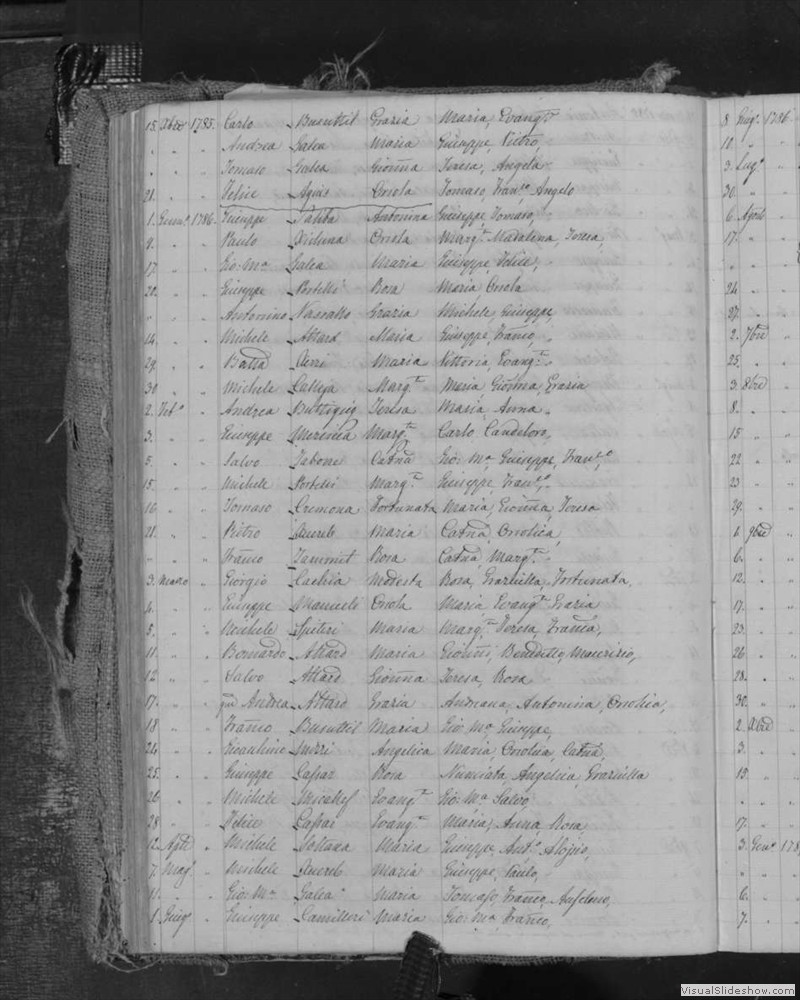 15. Xbre 1785. Carlo Busuttil Grazia Maria, Evangta
" " " Andrea Galea Maria Giuseppe, Pietro,
" " " Tomaso Galea Gionna Teresa, Angela
21. " " Felice Agius Orsola Tomaso, Franco Angelo
1. Genno 1786. Giuseppe Saliba Antonina Giuseppe, Tomaso,
9. " " Paulo Xicluna Orsola Margta Madalena, Teresa,
17. " " Gio: Ma Galea Maria Giuseppe, Felice,
20. " " Giuseppe Portelli Rosa Maria, Orsola
" " " Antonino Nassallo Grazia Michele, Giuseppe,
14. " " Michele Attard Maria Giuseppe, Franco,
29. " " Batta Maria Vittoria, Evangta
30. " " Michele Calleja Margta Maria Gionna, Grazia
2. Feb. " Andrea Buttigieg Teresa Maria Anna
3. " " Giuseppe Mercieca Margta Carlo Candeloro,
5. " " Salvo Tabone Catna Gio: Ma Giuseppe, Franco
15. " " Michele Portelli Margta Giuseppe, Franco
16 " " Tomaso Cremona Fortunata Maria, Gionna, Teresa
21. " " Pietro Xuereb Maria Catna, Orsolica,
" " " Franco Zammit Rosa Catna, Margta
3. Marzo " Giorgio Cachia Modesta Rosa, Graziulla, Fortunata,
4. " " Giuseppe Orsola Maria, Evangta Grazia
5. " " Michele Spiteri Maria Margta Teresa, Franca,
11. " " Bernardo Attard Maria Gionni, Beneditto, Maurizio,
12 " " Salvo Attard Gionna Teresa, Rosa
17. " " Andrea Attard Grazia Andreana, Antonina, Orsolica,
18 " " Franco Busuttil Maria Gio: Ma Giuseppe,
24. " " Gioachino Angelica Maria, Orsolica, Catna,
25. " " Giuseppe Cassar Rosa Nunziata, Angelica, Graziulla
26. " " Michele Micallef Evangta Gio: Ma Salvo,
28. " " Felice Cassar Evangta Maria, Anna, Rosa
12. Aple " Michele Sultana Maria Giuseppe, Anto Alojsio,
7. Magº " Michele Xuereb Maria Giuseppe, Paulo,
11. " " Gio: Ma Galea Maria Tomaso, Franco, Anselmo,
1. Giugº " Giuseppe Camilleri Maria Gio: Ma Franco,
8 Giugº 1786
10. " "
3. Lugº "
30. " "
6. Agosto
17. " "
" " "
24. " "
27. " "
2. 7bre
25. " "
3. 8bre
8. " "
15 " "
22 " "
23 " "
29. " "
1. 9bre
6. " "
12. " "
17. " "
23. " "
26. " "
28. " "
30. " "
2. Xbre
3. " "
15. " "
" " "
17. " "
3. Geno 178
" " "
6. " "
7. " "
VisualSlideshow.com